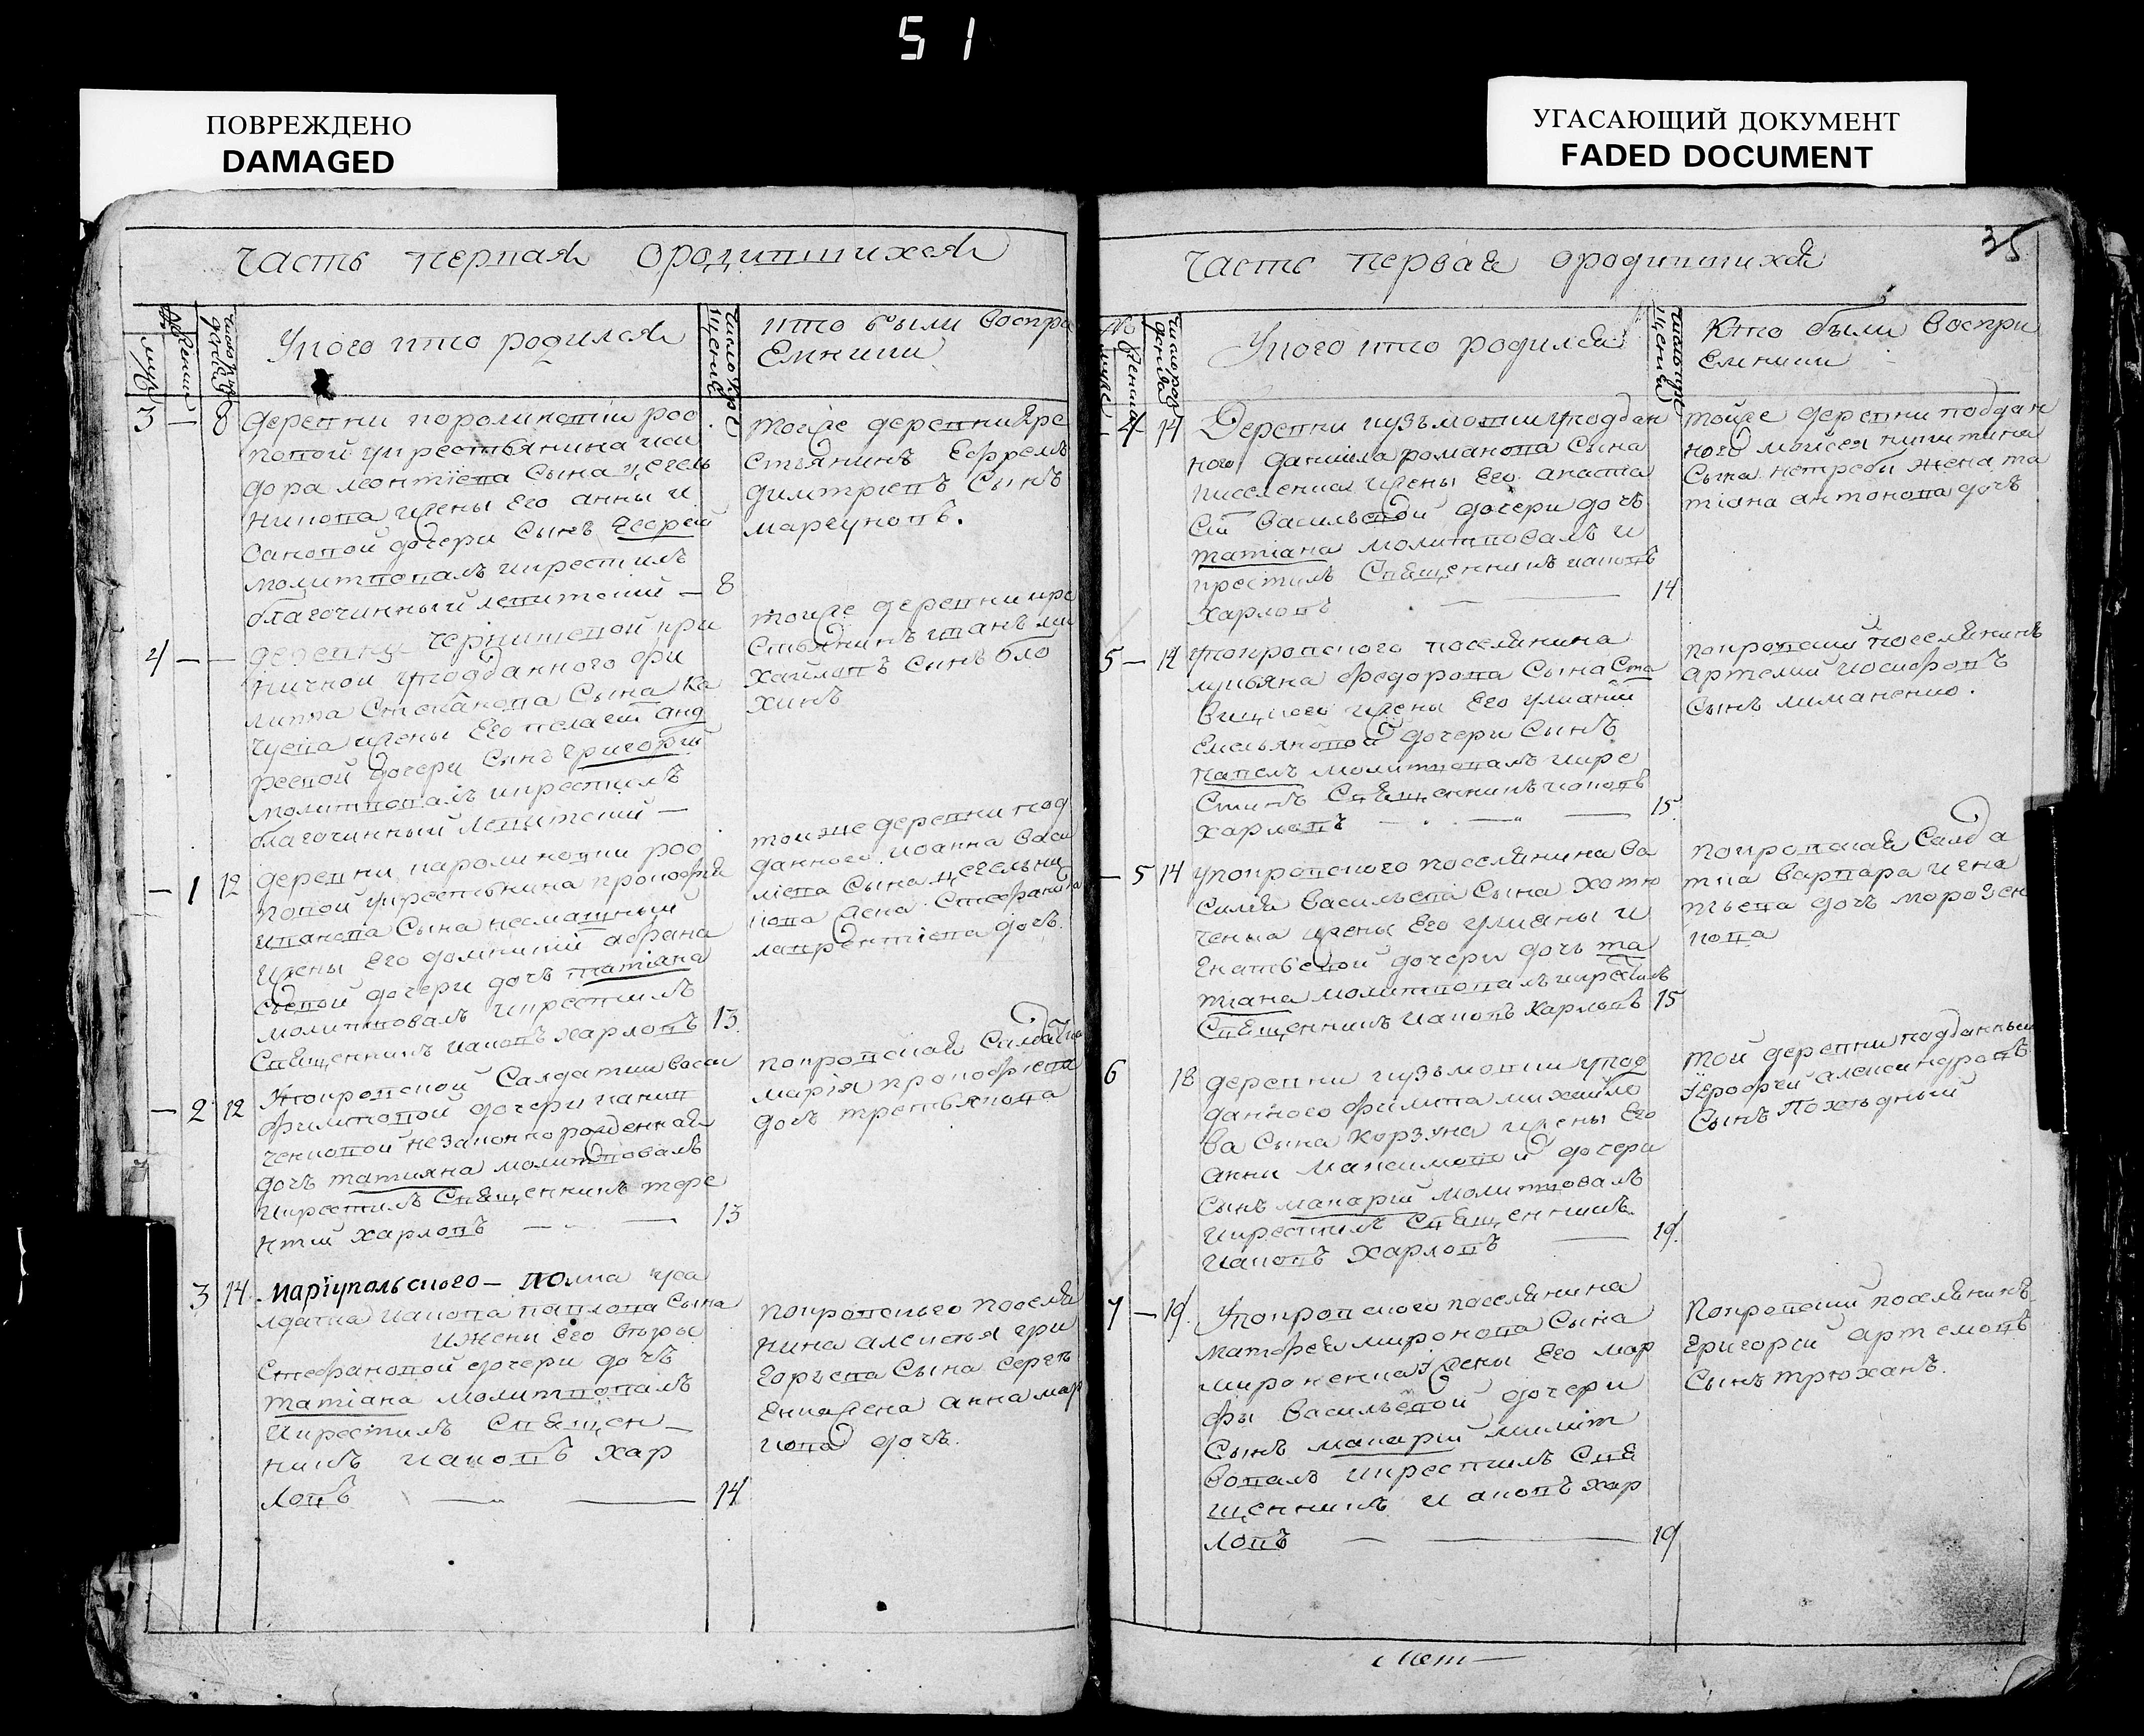 51
ПОВРЕЖДЕНО
DAMAGED
УГАСАЮЩИЙ ДОКУМЕНТ
FADED DOCUMENT
Часть первая ородившихся
У кого кто родился
кто были воспри
Емники
3 — 8
деревни
доры леонтiева Сына цегель
никова жены Его анны и
Савовой дочери Сынъ Егорей
молитвовалъ икрестилъ
благочинный левитский — 8
тойже деревни кре
стьянинъ Ефремъ
димтриевъ Сынъ
маргуновъ.
4 — —
ничкой уподданного фи
липпа Стефанова Сына ка
жены Его пелагеи анд
реевой дочери Сынъ Григорий
молитвовалъ икрестилъ
благочинный левитский —
тойже деревни кре
стьянинъ иванъ ми
хайловъ Сынъ бло
хинъ
— 1 12
попой укрестьянина прокофия
иванова Сына несмашный
жены Его домникии афана
сьевой дочери дочь татiана
молитвовалъ икрестилъ
Священникъ иаковъ харловъ 13
тойже деревни под
данного иоанна васи
лiева Сына цегельни
кова жена Стефанида
лаврентiева дочь.
— 2 12
Упокровской Салдатки васси
филиповой дочери
незаконнорожденная
дочь татияна молитвовалъ
икрестилъ Священникъ тере
нтий харловъ — — 13
покровская Салдатка
марiя прокофиева
дочь третьякова
3 14
марiупольского — полка уса
лдатка иакова павлова Сына
ижены Его
Стефановой дочери дочь
татiана молитвовалъ
икрестилъ Священ
никъ иаковъ хар
ловъ — — 14
покровского поселя
нина алексея гри
горьева Сына
енка жена анна мар
кова дочь.
35
Часть первая ородившихся
У кого кто родился
Кто были воспри
Емники
4 14
Деревни кузьмовки уподдан
ного данiила романова Сына
киселенка жены Его анаста
сiи васильевой дочери дочь
татiана молитвовалъ и
крестилъ Священникъ иаковъ
харловъ — 14
тойже деревни поддан
ного мойсея никитина
Сына нетреби жена та
тiана антонова дочь
5 — 14
упокровского поселянина
лукьяна федорова Сына Ста
вицкого жены Его улианiи
Емельяновой дочери Сынъ
павелъ молитвовалъ икре
стилъ Священникъ иаковъ
харловъ — — 15
покровский поселянинъ
артемий иосифовъ
Сынъ лиманенко.
— 5 14
упокровского поселянина ва
силия васильева Сына хотю
ченка жены Его улияны и
гнатьевой дочери дочь та
тiана молитвовалъ икрестилъ
Священникъ иаковъ харловъ 15
покровская Салда
тка варвара игна
тьева дочь морозен
кова
6 18
деревни кузьмовки упод
данного филипа михайло
ва Сына Корзуна жены Его
анны Максимовой дочери
Сынъ макарий молитвовалъ
икрестилъ Священникъ
иаковъ харловъ — 19
той деревни подданный
Ерофей александровъ
Сынъ Походный
7 — 19
Упокровского поселянина
матфея миронова Сына
мироненка жены Его мар
фы васильевой дочери
Сынъ макарий милит
вовалъ икрестилъ Свя
щенникъ иаковъ хар
ловъ — — 19
Покровский поселянинъ
григорий артемовъ
Сынъ трюханъ.